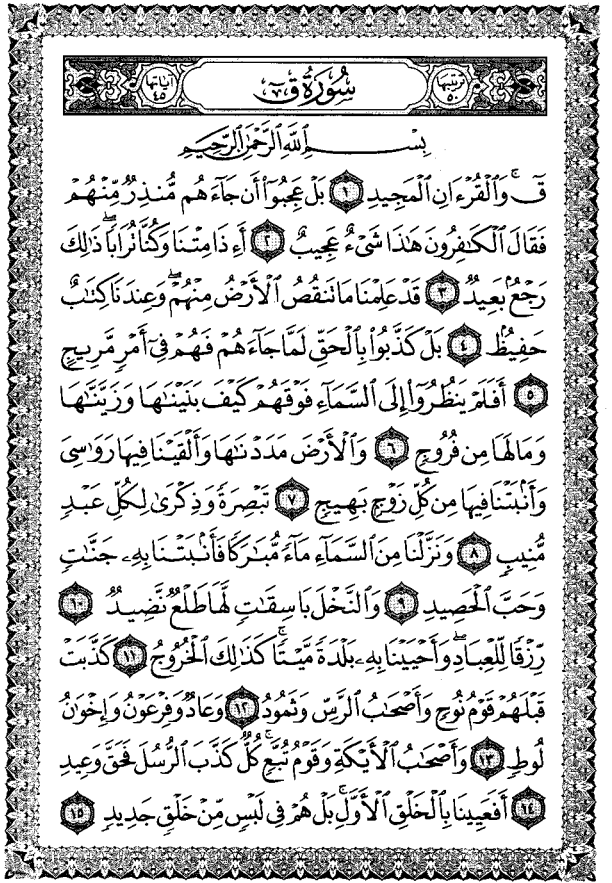 ترتيبها ٥٠ سُورَةُ قٓ آياتها ٤٥
بِسْمِ ٱللَّهِ ٱلرَّحْمَٰنِ ٱلرَّحِيمِ
قٓۚ وَٱلْقُرْءَانِ ٱلْمَجِيدِ ١ بَلْ عَجِبُوٓا۟ أَن جَآءَهُم مُّنذِرٌ مِّنْهُمْ
فَقَالَ ٱلْكَٰفِرُونَ هَٰذَا شَىْءٌ عَجِيبٌ ٢ أَءِذَا مِتْنَا وَكُنَّا تُرَابًاۖ ذَٰلِكَ
رَجْعٌۢ بَعِيدٌ ٣ قَدْ عَلِمْنَا مَا تَنقُصُ ٱلْأَرْضُ مِنْهُمْۖ وَعِندَنَا كِتَٰبٌ
حَفِيظٌۢ ٤ بَلْ كَذَّبُوا۟ بِٱلْحَقِّ لَمَّا جَآءَهُمْ فَهُمْ فِىٓ أَمْرٍ مَّرِيجٍ
٥ أَفَلَمْ يَنظُرُوٓا۟ إِلَى ٱلسَّمَآءِ فَوْقَهُمْ كَيْفَ بَنَيْنَٰهَا وَزَيَّنَّٰهَا
وَمَا لَهَا مِن فُرُوجٍ ٦ وَٱلْأَرْضَ مَدَدْنَٰهَا وَأَلْقَيْنَا فِيهَا رَوَٰسِىَ
وَأَنۢبَتْنَا فِيهَا مِن كُلِّ زَوْجٍۭ بَهِيجٍ ٧ تَبْصِرَةً وَذِكْرَىٰ لِكُلِّ عَبْدٍ
مُّنِيبٍ ٨ وَنَزَّلْنَا مِنَ ٱلسَّمَآءِ مَآءً مُّبَٰرَكًا فَأَنۢبَتْنَا بِهِۦ جَنَّٰتٍ
وَحَبَّ ٱلْحَصِيدِ ٩ وَٱلنَّخْلَ بَاسِقَٰتٍ لَّهَا طَلْعٌ نَّضِيدٌ ١٠
رِّزْقًا لِّلْعِبَادِۖ وَأَحْيَيْنَا بِهِۦ بَلْدَةً مَّيْتًاۚ كَذَٰلِكَ ٱلْخُرُوجُ ١١ كَذَّبَتْ
قَبْلَهُمْ قَوْمُ نُوحٍ وَأَصْحَٰبُ ٱلرَّسِّ وَثَمُودُ ١٢ وَعَادٌ وَفِرْعَوْنُ وَإِخْوَٰنُ
لُوطٍ ١٣ وَأَصْحَٰبُ ٱلْأَيْكَةِ وَقَوْمُ تُبَّعٍۚ كُلٌّ كَذَّبَ ٱلرُّسُلَ فَحَقَّ وَعِيدِ
١٤ أَفَعَيِينَا بِٱلْخَلْقِ ٱلْأَوَّلِۚ بَلْ هُمْ فِى لَبْسٍ مِّنْ خَلْقٍ جَدِيدٍ ١٥